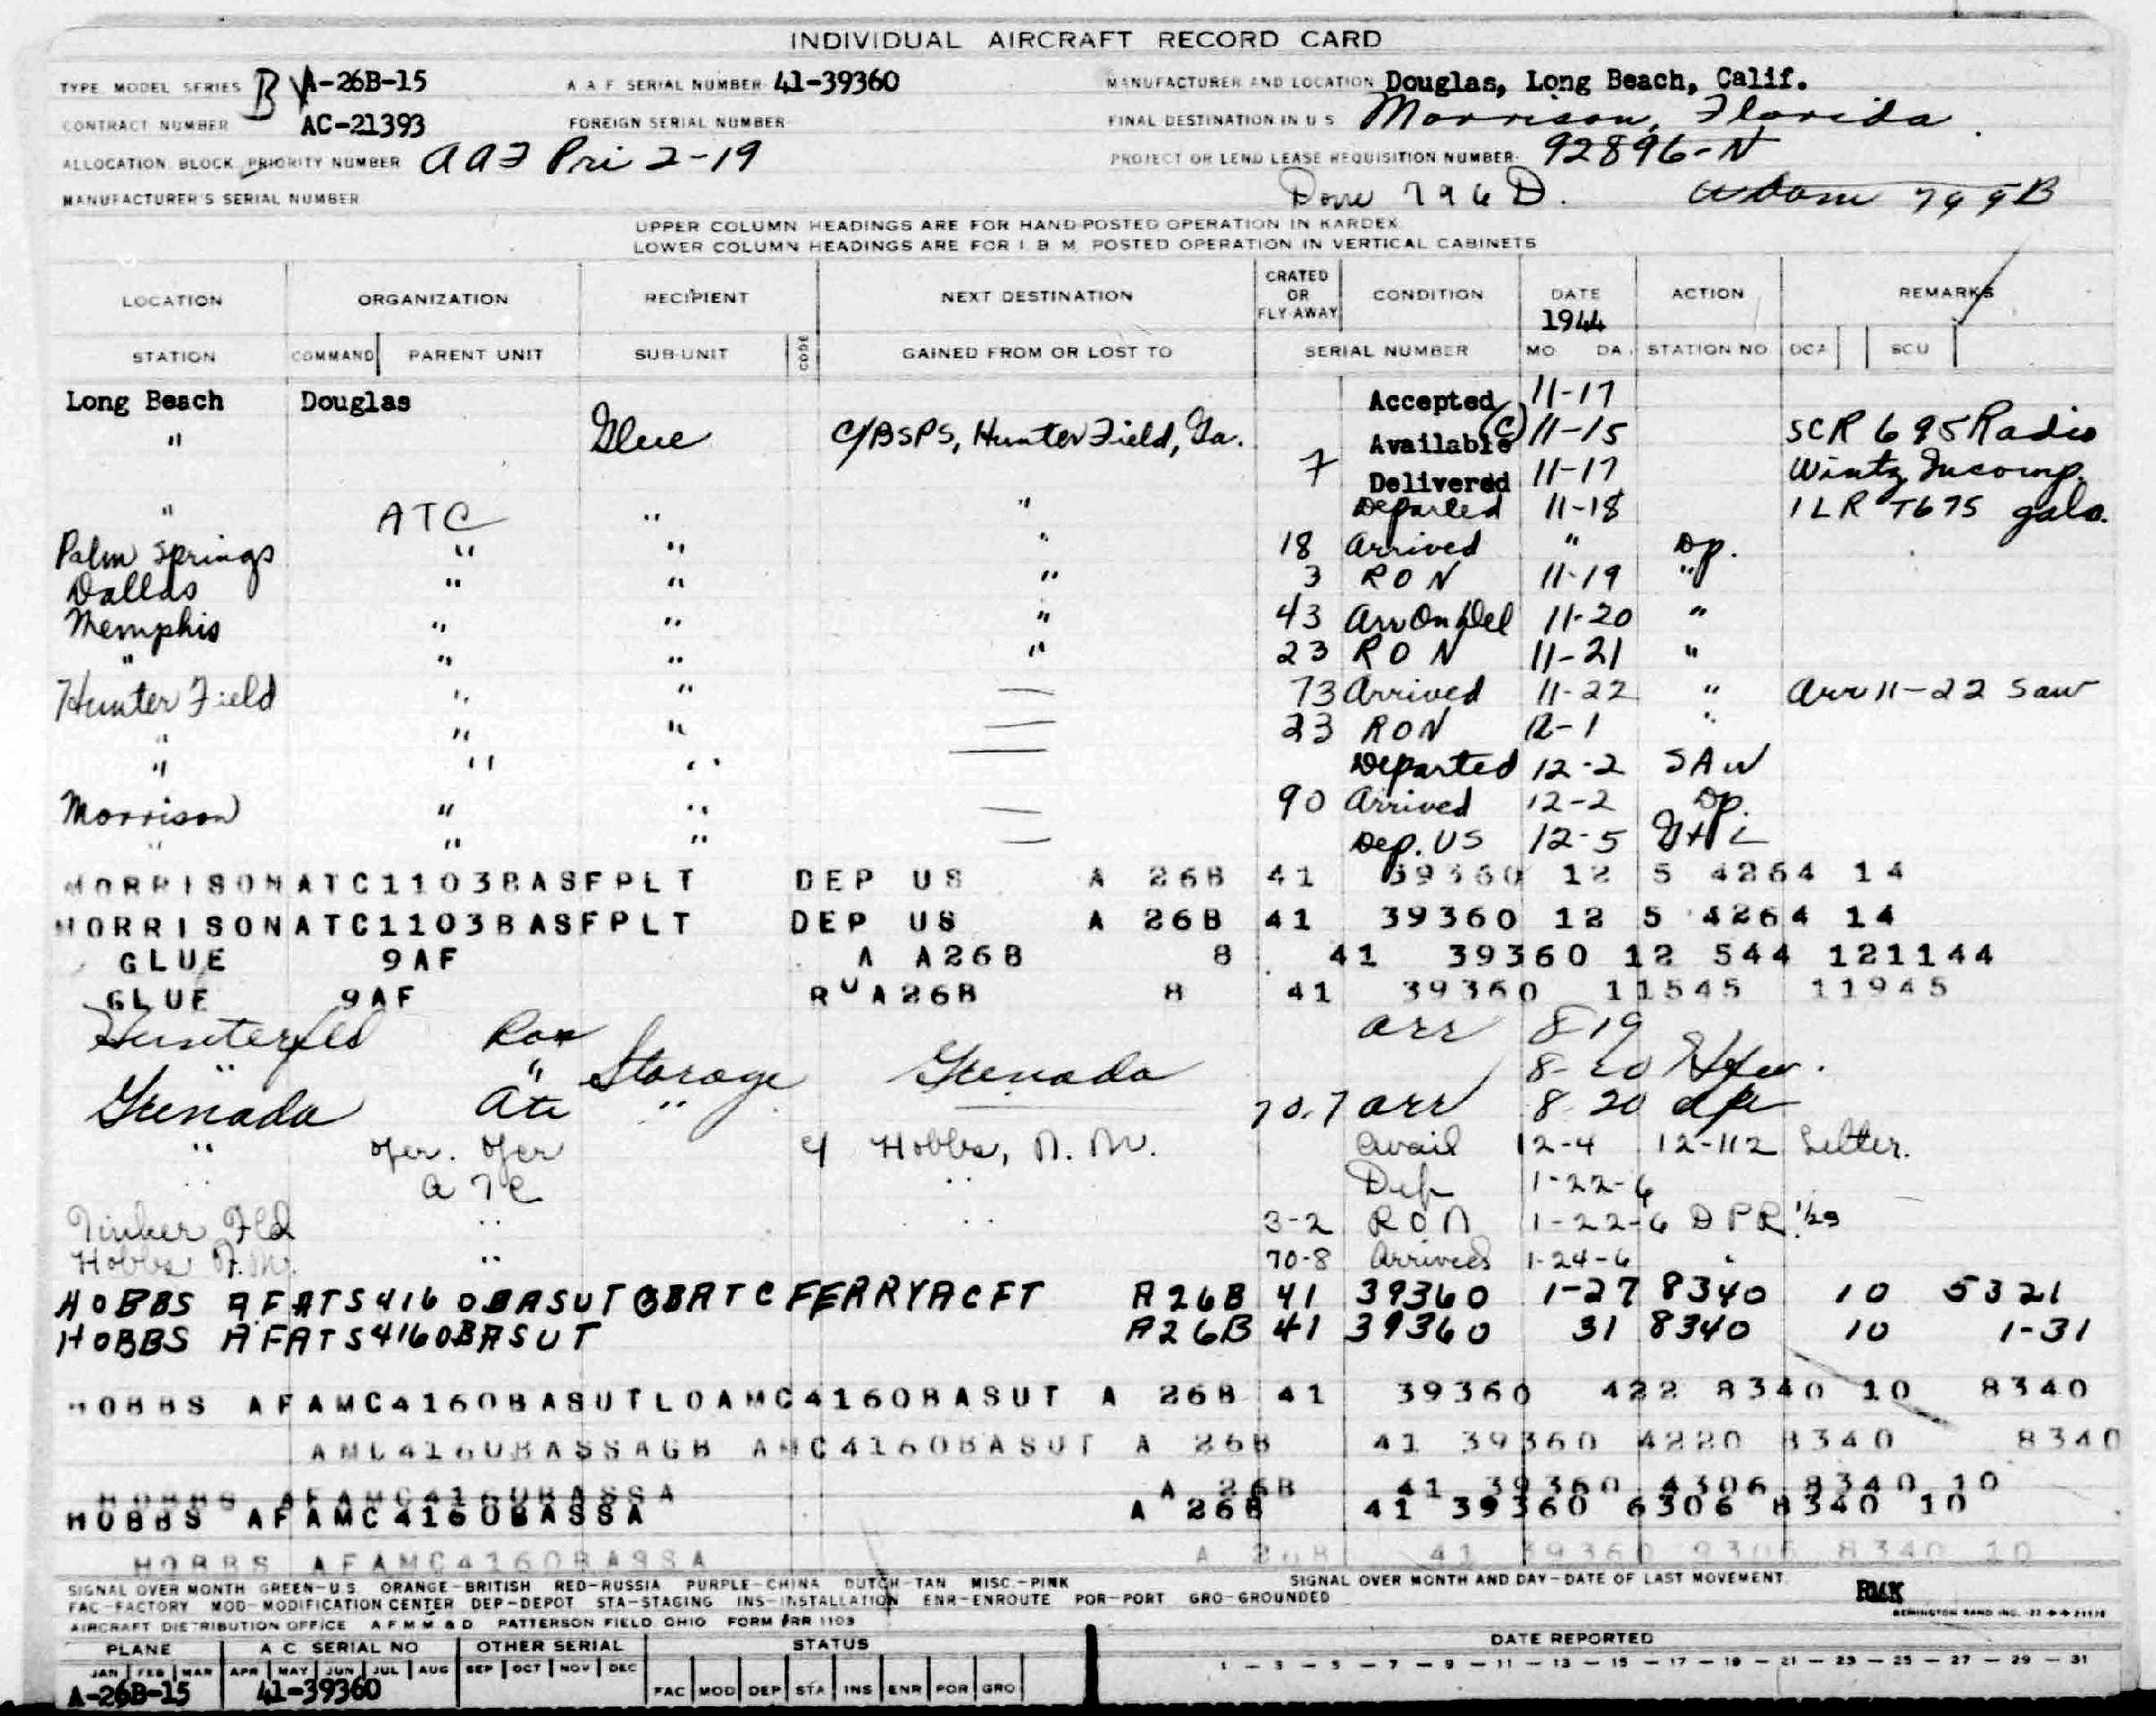 INDIVIDUAL AIRCRAFT RECORD CARD
TYPE MODEL SERIES B A-26B-15 A A F SERIAL NUMBER 41-39360 MANUFACTURER AND LOCATION Douglas, Long Beach, Calif.
CONTRACT NUMBER AC-21393 FOREIGN SERIAL NUMBER FINAL DESTINATION IN U S Morrison, Florida
ALLOCATION BLOCK PRIORITY NUMBER AAF Pri 2-19 PROJECT OR LEND LEASE REQUISITION NUMBER 92896-N
MANUFACTURER'S SERIAL NUMBER 796 D. 799B
UPPER COLUMN HEADINGS ARE FOR HAND-POSTED OPERATION IN KARDEX
LOWER COLUMN HEADINGS ARE FOR I. B. M. POSTED OPERATION IN VERTICAL CABINETS
LOCATION ORGANIZATION RECIPIENT NEXT DESTINATION CRATED OR FLY-AWAY CONDITION DATE 1944 ACTION REMARKS
STATION COMMAND PARENT UNIT SUB-UNIT CODE GAINED FROM OR LOST TO SERIAL NUMBER MO DA STATION NO DCA SCU
Long Beach Douglas Accepted 11-17
" Glue C/BSPS, Hunter Field, Ga. Available (C) 11-15 SCR 695 Radio
7 Delivered 11-17 Wintz Incomp.
" ATC " " Departed 11-18 1LR T675 gals.
Palm Springs " " " 18 Arrived " Dp.
Dallas " " " 3 RON 11-19 "
Memphis " " " 43 Arr On Del 11-20 "
" " " " 23 RON 11-21 "
Hunter Field " " — 73 Arrived 11-22 " Arr 11-22 Saw
" " " — 23 RON 12-1 "
" " " — Departed 12-2 SAW
Morrison " " — 90 Arrived 12-2 Dp.
" " " — Dep. US 12-5
MORRISONATC1103BASFPLT DEP US A 26B 41 39360 12 5 4264 14
MORRISONATC1103BASFPLT DEP US A 26B 41 39360 12 5 4264 14
GLUE 9AF A A26B 8 41 39360 12 544 121144
GLUE 9AF R U A26B 8 41 39360 11545 11945
Hunterfld arr 8-19
" " Storage Grenada 8-20
Grenada Atc " — 70.7 arr 8 20 dp
" oper. oper c/ Hobbs, N. M. Avail 12-4 12-112 Letter.
" ATC " Dep 1-22-6
Tinker Fld " " 3-2 RON 1-22-6 DPR 1/23
Hobbs N.M. " 70-8 Arrived 1-24-6 "
HOBBS AFATS4160BASUTGBATCFERRYACFT A26B 41 39360 1-27 8340 10 5321
HOBBS AFATS4160BASUT A26B 41 39360 31 8340 10 1-31
HOBBS AFAMC4160BASUTLOAMC4160BASUT A 26B 41 39360 422 8340 10 8340
AMC4160BASSAGB AMC4160BASUT A 26B 41 39360 4220 8340 8340
HOBBS AFAMC4160BASSA A 26B 41 39360 4306 8340 10
HOBBS AFAMC4160BASSA A 26B 41 39360 6306 8340 10
HOBBS AFAMC4160BASSA A 26B 41 39360 9306 8340 10
SIGNAL OVER MONTH GREEN-U.S. ORANGE-BRITISH RED-RUSSIA PURPLE-CHINA DUTCH-TAN MISC.-PINK SIGNAL OVER MONTH AND DAY-DATE OF LAST MOVEMENT.
FAC-FACTORY MOD-MODIFICATION CENTER DEP-DEPOT STA-STAGING INS-INSTALLATION ENR-ENROUTE POR-PORT GRO-GROUNDED
AIRCRAFT DISTRIBUTION OFFICE A F M M & D PATTERSON FIELD OHIO FORM ARR 1103 REMINGTON RAND INC.
PLANE A C SERIAL NO OTHER SERIAL STATUS DATE REPORTED
JAN FEB MAR APR MAY JUN JUL AUG SEP OCT NOV DEC 1 — 3 — 5 — 7 — 9 — 11 — 13 — 15 — 17 — 19 — 21 — 23 — 25 — 27 — 29 — 31
A-26B-15 41-39360 FAC MOD DEP STA INS ENR POR GRO